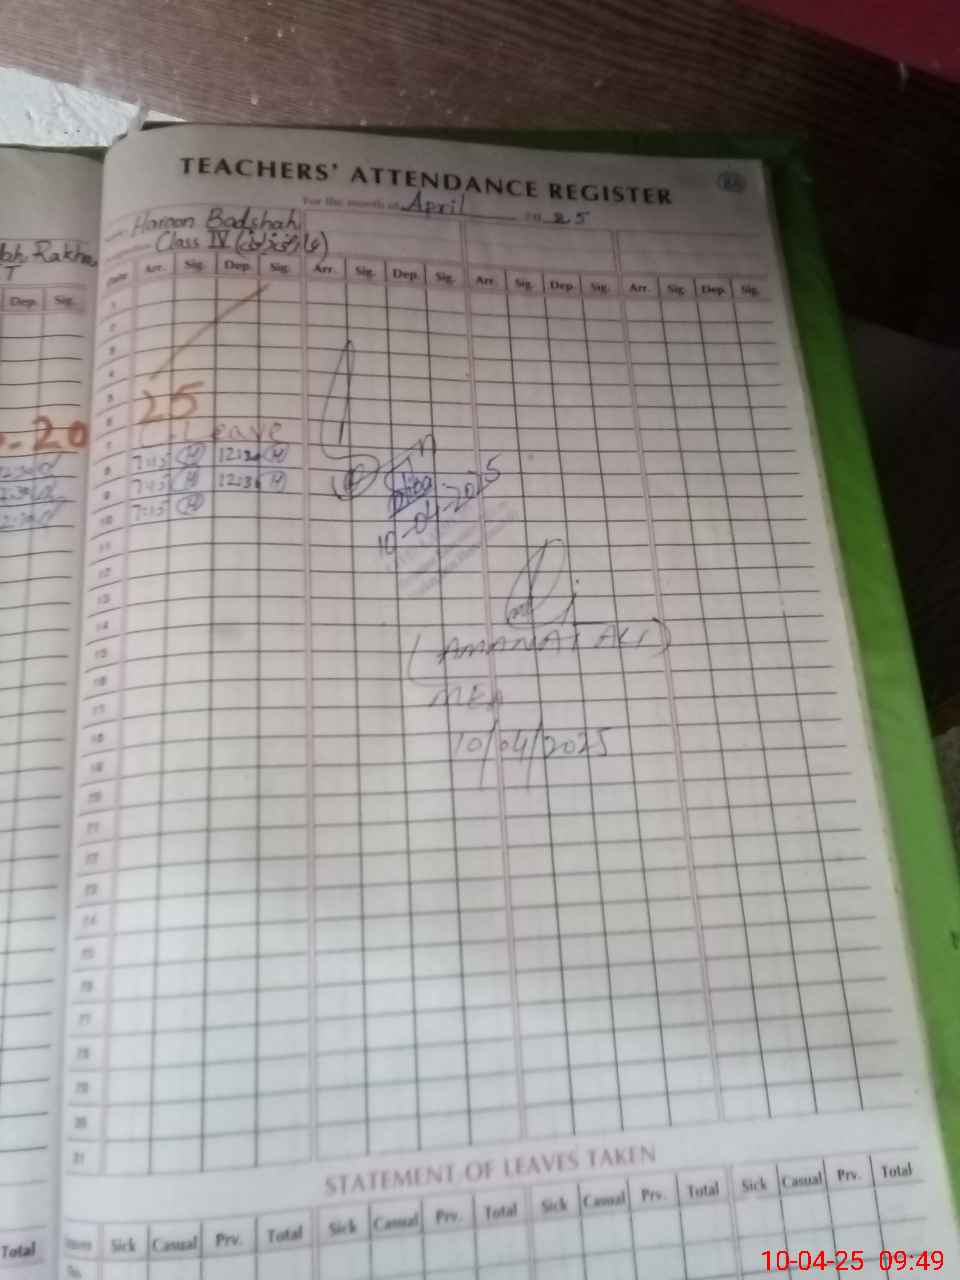 TEACHERS' ATTENDANCE REGISTER
For the month of April 20 25
Haroon Badshah
Class IV
Date Arr. Sig. Dep. Sig. Arr. Sig. Dep. Sig. Arr. Sig. Dep. Sig. Arr. Sig. Dep. Sig.
1
2
3
4
5 25
6
7 C. Leave
8 7:45 H 12:30 H
9 7:45 H 12:30 H
10 7:45 H
10-04-2025
11
12
13
14
15
(AMANAT ALI)
16
17
MEA
18
10/04/2025
19
20
21
22
23
24
25
26
27
28
29
30
31
STATEMENT OF LEAVES TAKEN
Sick Casual Prv. Total Sick Casual Prv. Total Sick Casual Prv. Total Sick Casual Prv. Total
No.
Rakha
T
Dep. Sig.
20
Total
10-04-25 09:49